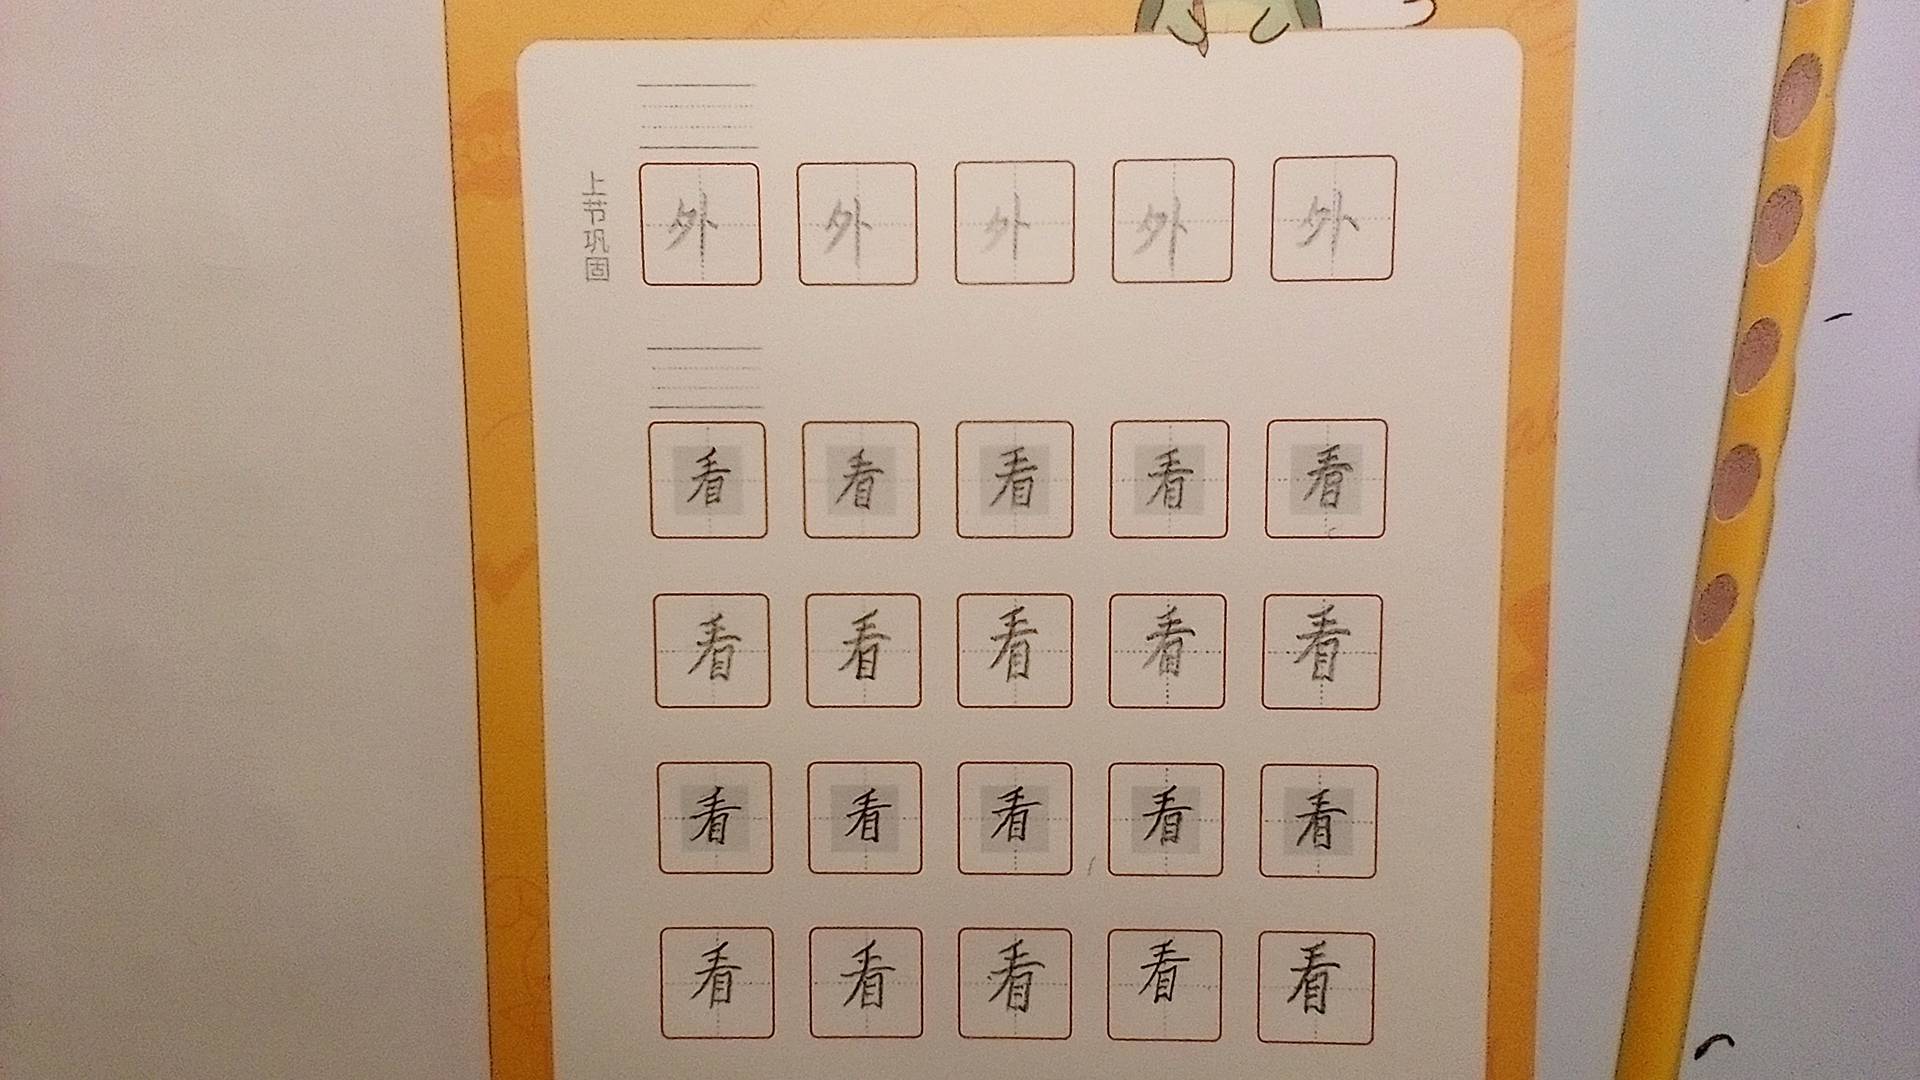 上节巩固
外 外 外 外 外
看 看 看 看 看
看 看 看 看 看
看 看 看 看 看
看 看 看 看 看